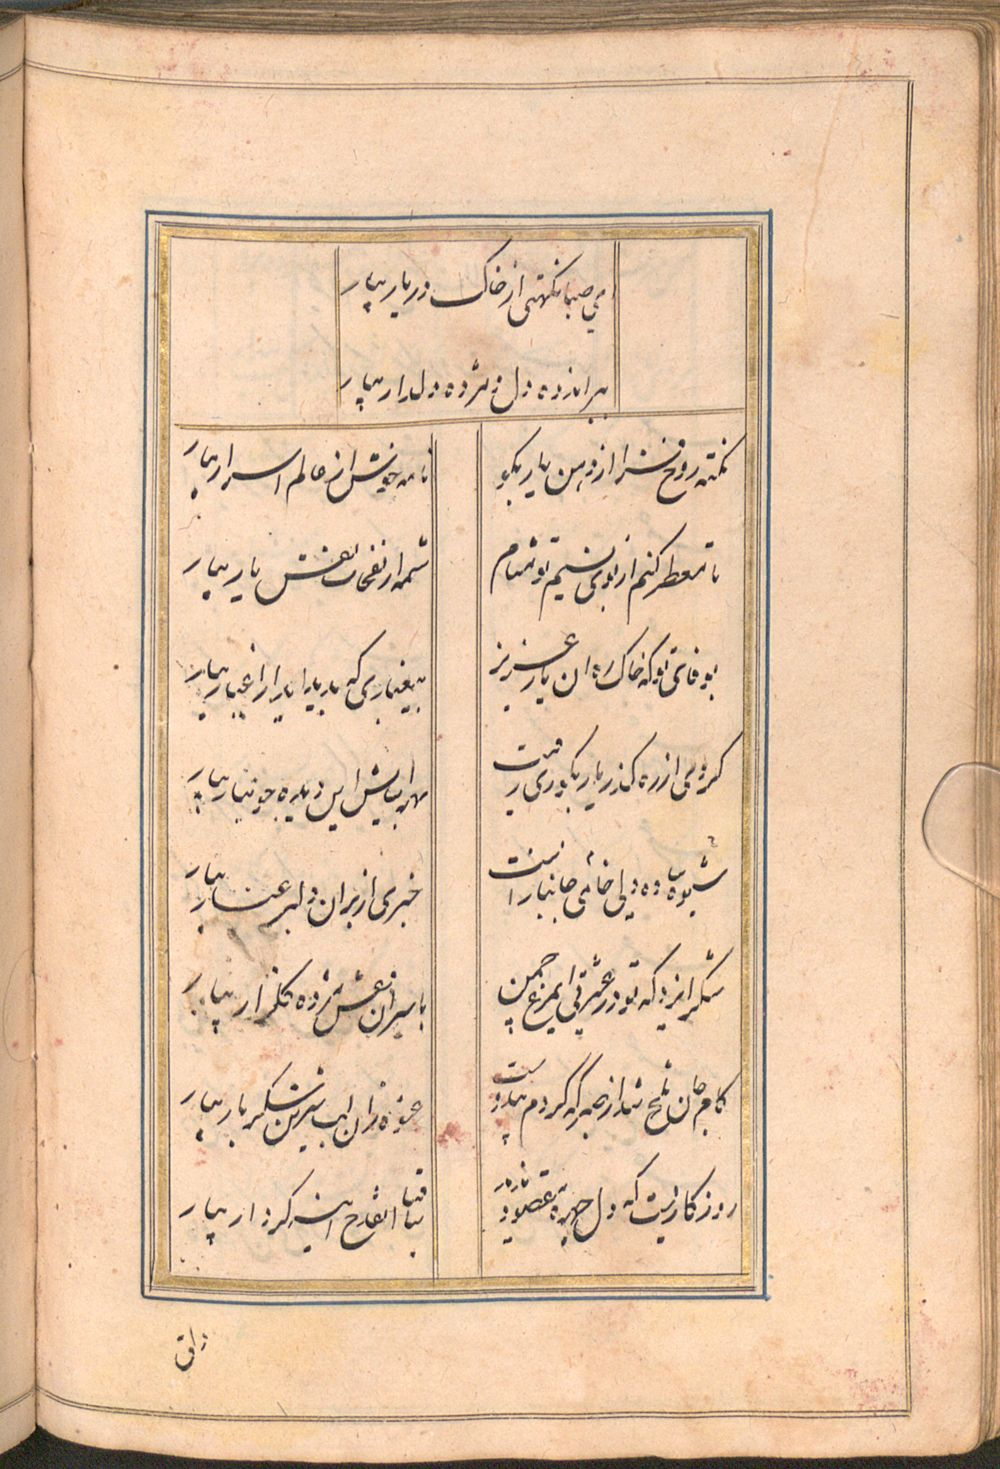 ای صبا نکهتی از خاک در یار بیار
ببر اندوه دل و مژده دلدار بیار
نکته روح فزا از دهن یار بگو
نامه خوش از عالم اسرار بیار
تا معطر کنم از بوی نسیم تو مشام
شمه از نفحات نفس یار بیار
بوفای تو که خاک ره ان یار عزیز
بی غباری که پدید اید از اغیار بیار
کردی از ره کذر یار بکوری رقیب
بهر اسایش این دیده خونبار بیار
شیوه ساده دلی خامی جانبازانست
خبری از بر ان دلبر عیار بیار
شکر ایزد که تو در عشرتی ای مرغ چمن
باسیران قفس مژده کلزار بیار
کام جان تلخ شد از صبر که کردم بیدوست
عشوه زان لب شیرین شکر بار بیار
روزکاریست که دل چهره مقصود ندید
ساقیا ان قدح اینه کردار بیار
دلق